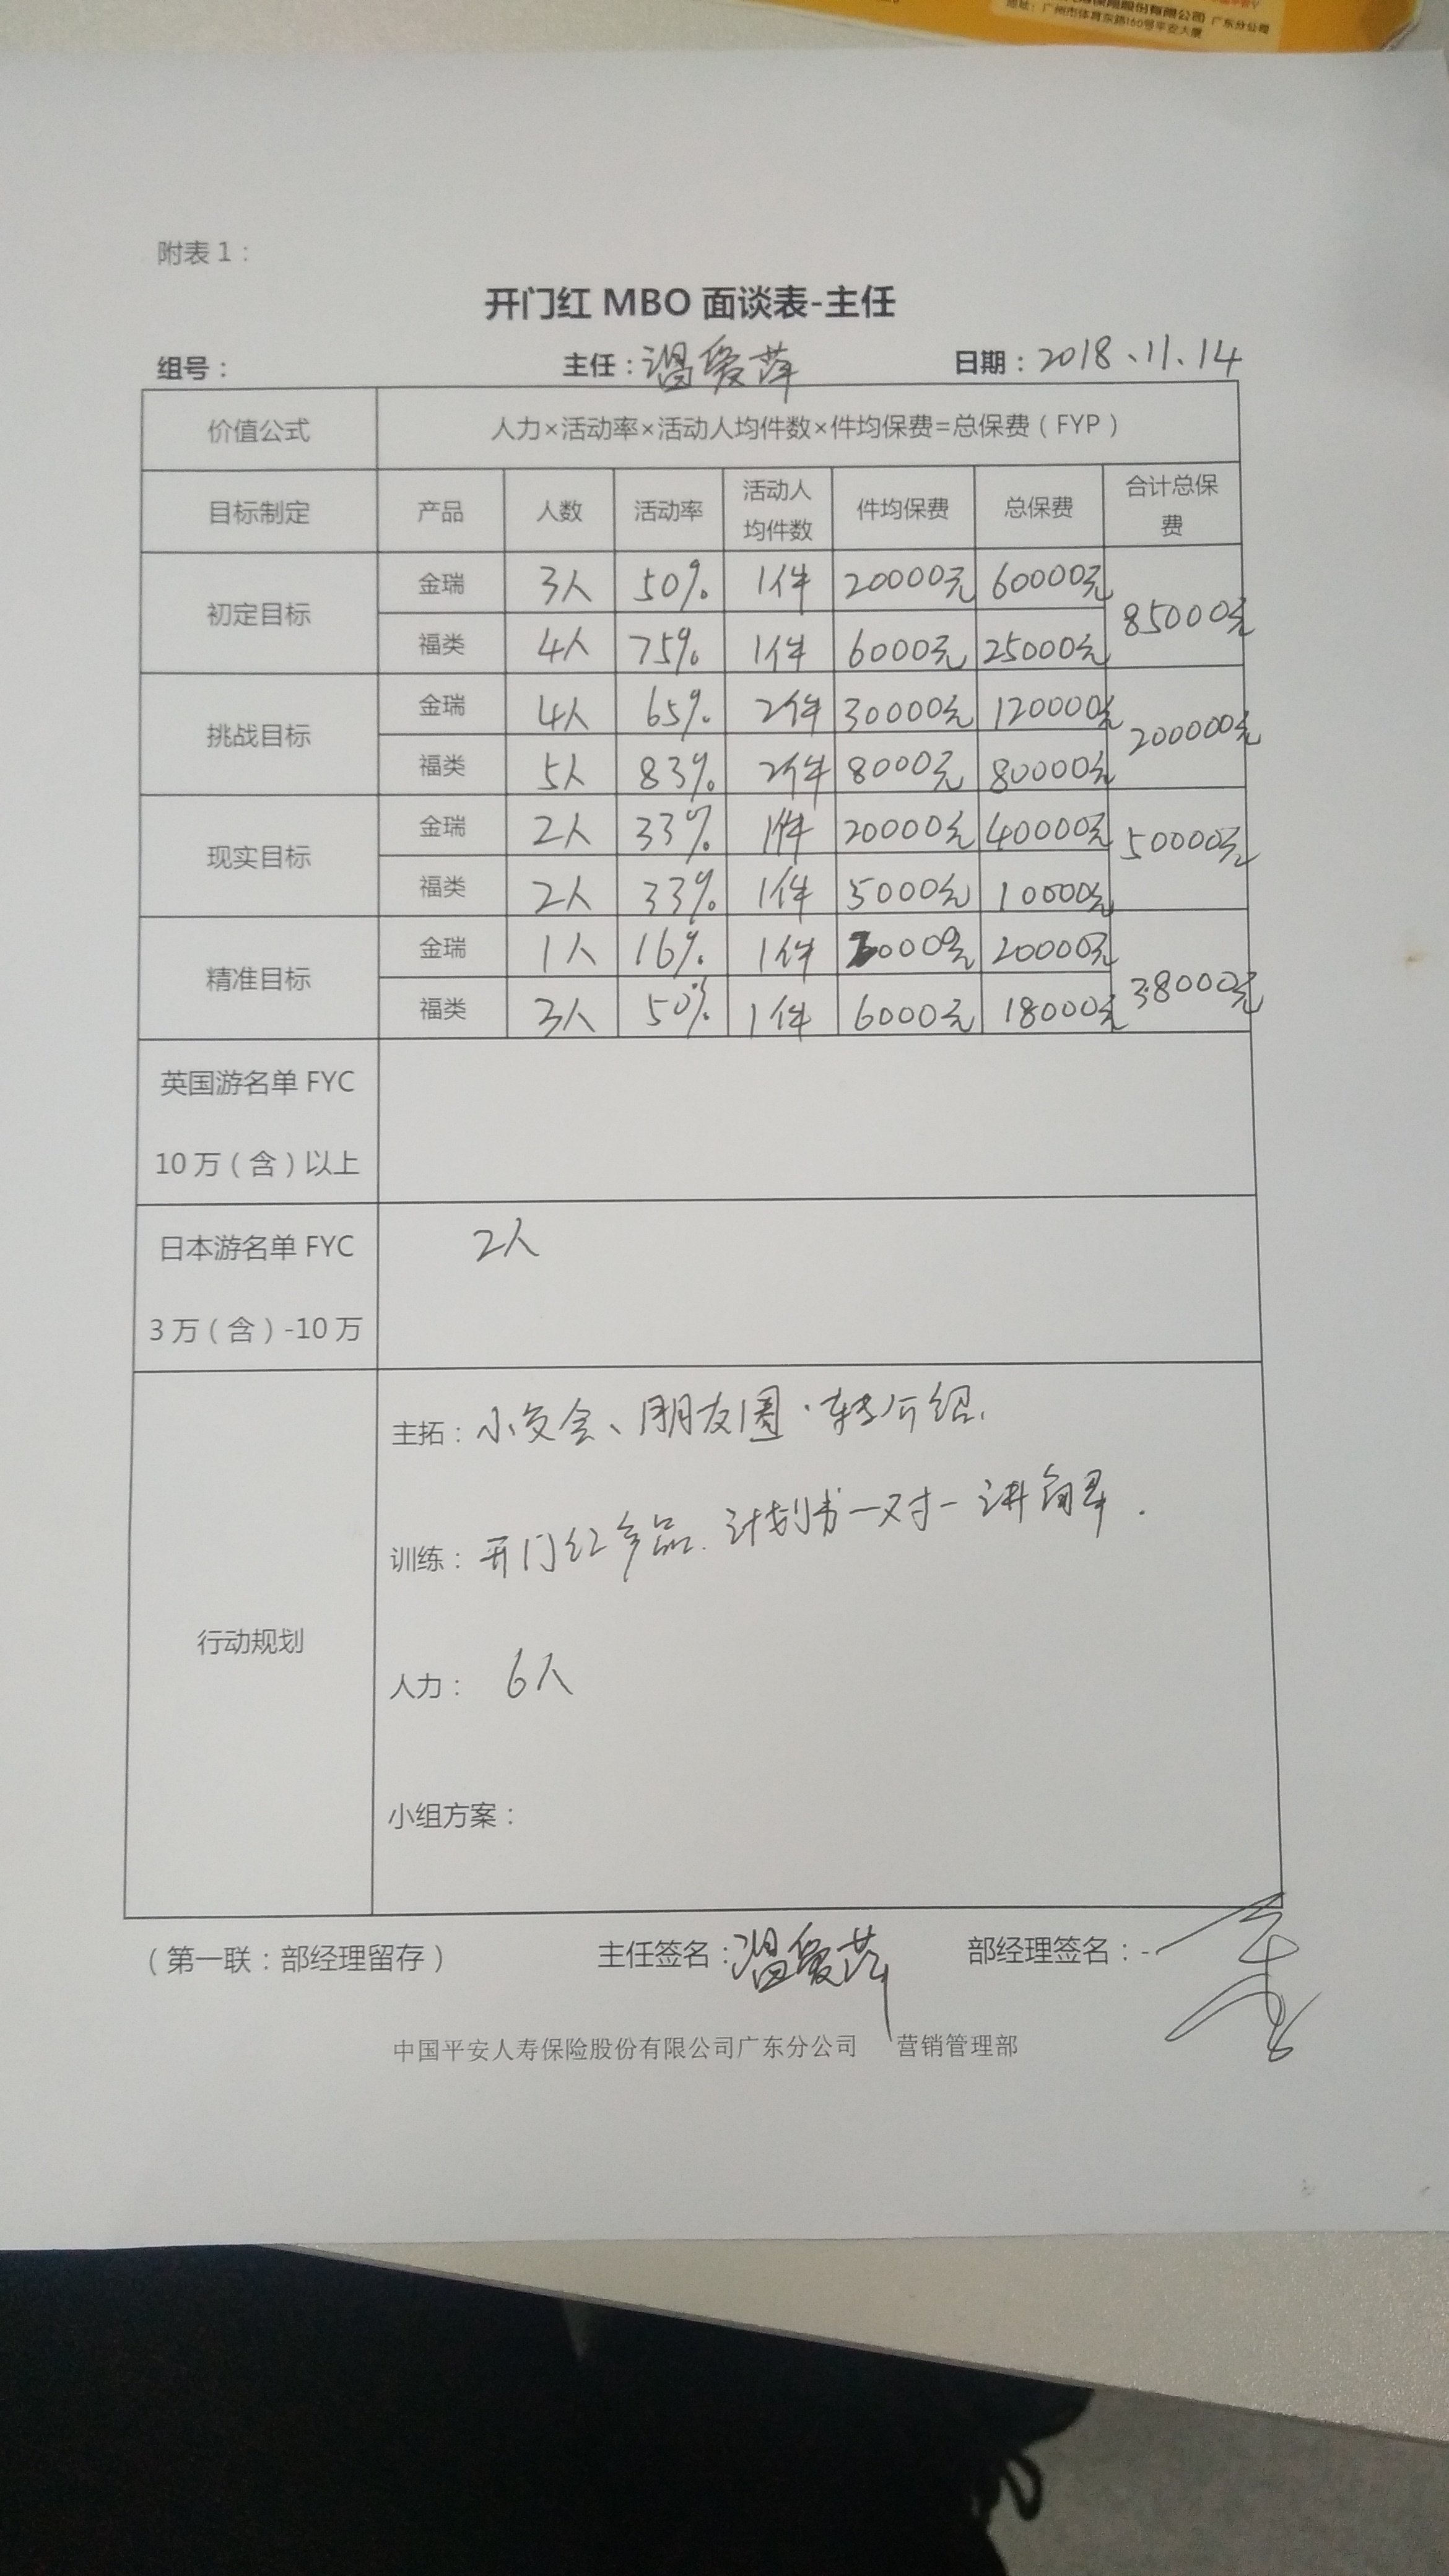 地址：广州市体育东路160号平安大厦
附表 1：
开门红 MBO 面谈表-主任
组号： 主任：温爱萍 日期：2018、11、14
价值公式 人力×活动率×活动人均件数×件均保费=总保费（FYP）
目标制定 产品 人数 活动率 活动人均件数 件均保费 总保费 合计总保费
初定目标 金瑞 3人 50% 1件 20000元 60000元 85000元
福类 4人 75% 1件 6000元 25000元
挑战目标 金瑞 4人 65% 2件 30000元 120000元 200000元
福类 5人 83% 2件 8000元 80000元
现实目标 金瑞 2人 33% 1件 20000元 40000元 50000元
福类 2人 33% 1件 5000元 10000元
精准目标 金瑞 1人 16% 1件 20000元 20000元 38000元
福类 3人 50% 1件 6000元 18000元
英国游名单 FYC
10 万（含）以上
日本游名单 FYC 2人
3 万（含）-10 万
主拓：小交会、朋友圈、转介绍.
训练：开门红产品、计划书一对一讲解.
行动规划
人力： 6人
小组方案：
（第一联：部经理留存） 主任签名：温爱萍 部经理签名：
中国平安人寿保险股份有限公司广东分公司 营销管理部